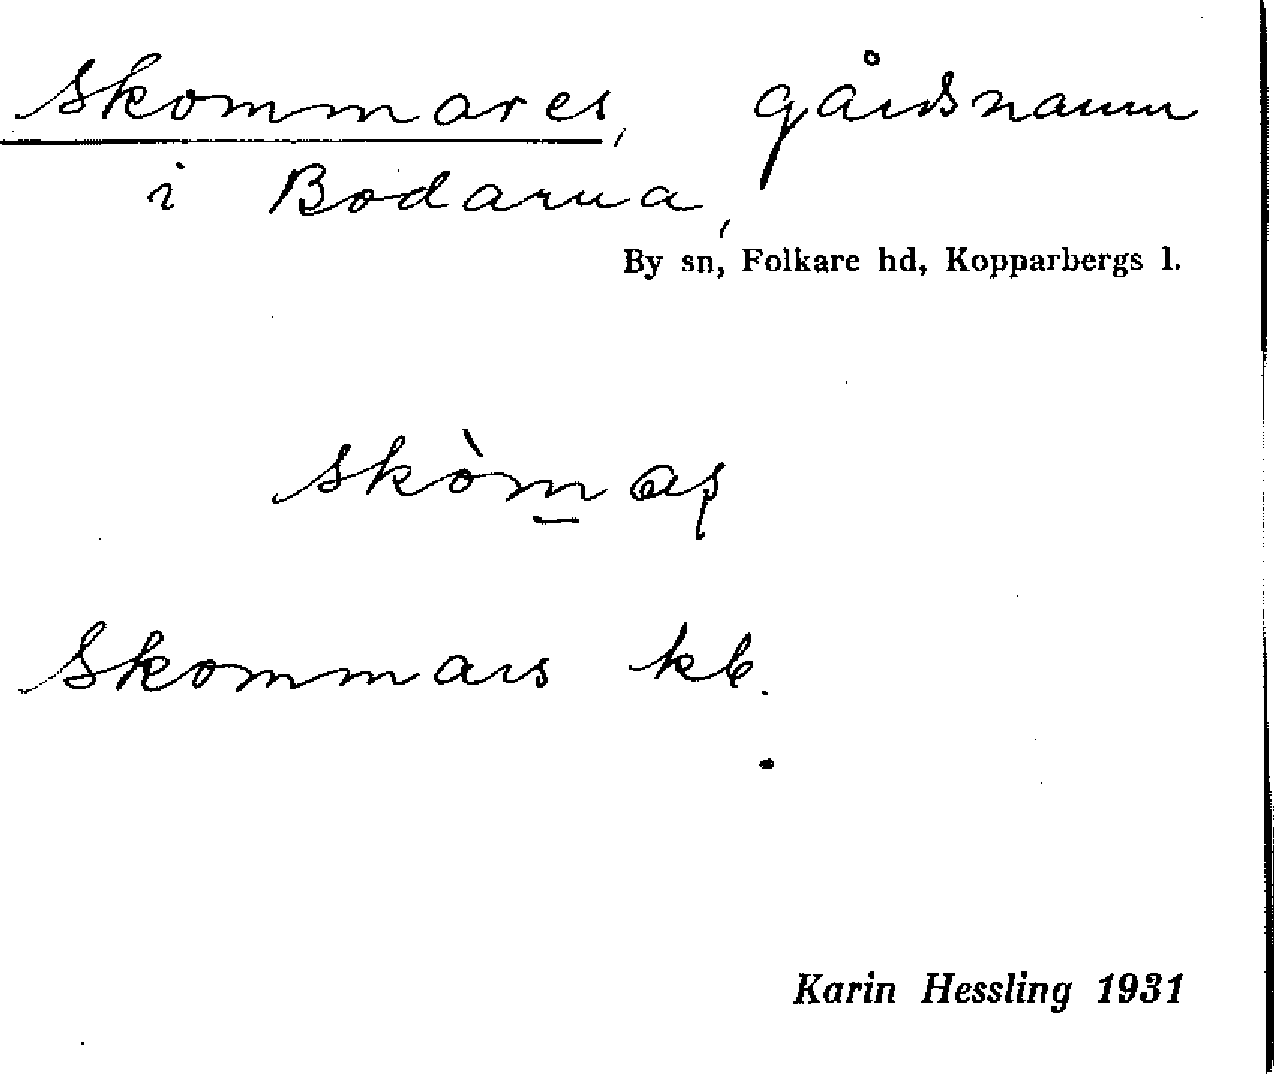 Skommares, gårdsnamn
i Bodarna,
By sn, Folkare hd, Kopparbergs l.
skòm̲aş
Skommars kb.
Karin Hessling 1931